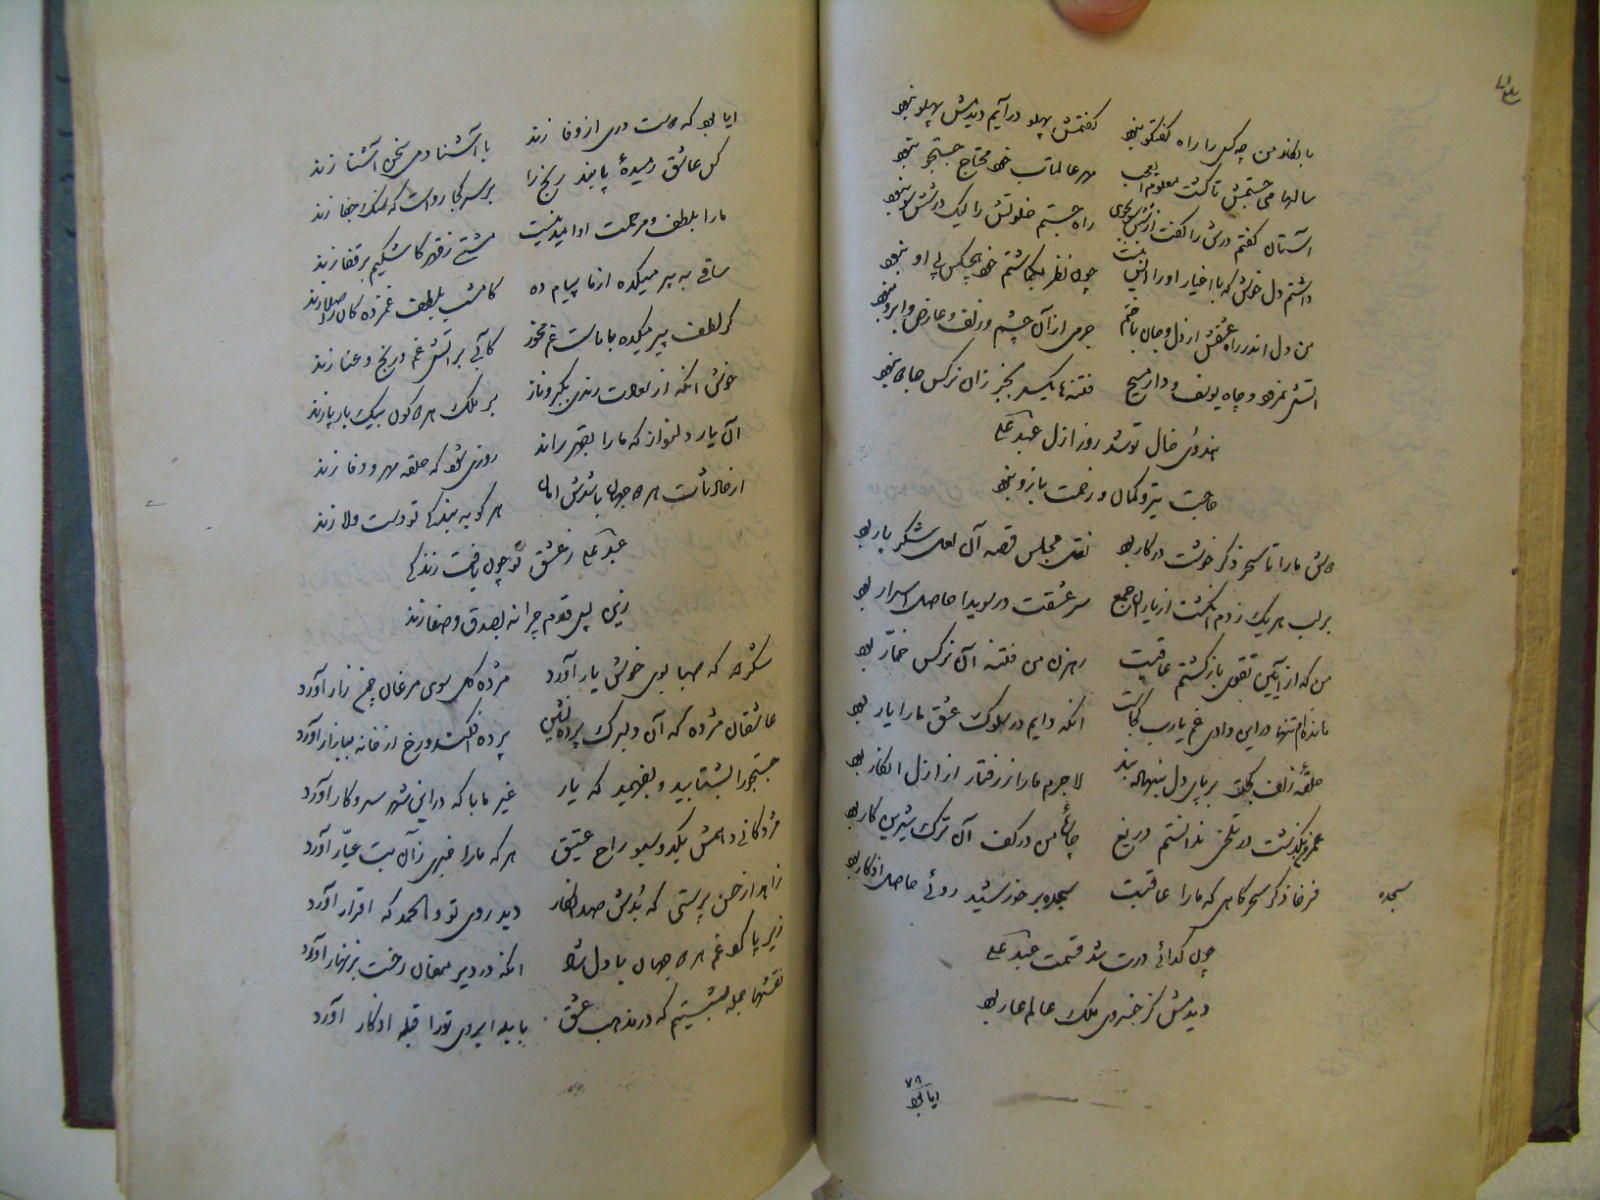 گفتمش پهلو درآیم دیدمش پهلو نبود
با یکانه من چه کس را راه گفتگو نبود
سالها می جستمش تا گشت معلوم
محتاج جستجو نبود
آستان گفتم درش را گفت
راه جستم خلوتش را لیک درش سو نبود
داشتم دل خوش که با اغیار او را
چون نظر بگماشتم خود هیچکس پی او نبود
من دل اندر راه عشقش از دل و جان باختم
جرمی از آن چشم و زلف و عارض و ابرو نبود
آتش نمرود و چاه یوسف و دار مسیح
فتنه ها یکسر بجز زان نرکس جادو نبود
هندوی خال تو شد روز ازل عبدعلی
حاجت تیر و کمان و زحمت بازو نبود
دوش ما را تا سحر ذکر خوشت در کار بود
نقل مجلس قصه آن لعل شکر بار بود
بر لب هر یک زدم انگشت از یاران جمع
سر عشقت در سویدا حاصل اسرار بود
من که از آیین تقوی بازگشتم عاقبت
رهزن من فتنه آن نرکس خمّار بود
مانده ام تنها در این وادی غم یارب کجاست
آنکه دایم در سلوک عشق ما را یار بود
حلقۀ زلف کجت بر پای دل بنهاد بند
لاجرم ما را ز رفتار از ازل انکار بود
عمر بگذشت در تلخی ندانستم دریغ
من در کف آن ترک شیرین کار بود
فرخا ذکر سحرگاهی که ما را عاقبت
سجده بر خورشید روئے حاصل اذکار بود
سجده
چون گدائے درت شد قسمت عبدعلی
دیدمش کز خسروی ملک عالم عار بود
۷۸
ایا بود
ایا بود که دست دری از وفا زند
با آشنا دمی سخن آشنا زند
گل عاشق رمیدۀ پابند رنج را
بر سر کجا رواست که سنگ جفا زند
ما را بلطف و مرحمت او امید نیست
مشتے ز قهر کاشکیم بر قفا زند
ساقے به پیر میکده از ما پیام ده
کامشب بلطف غمزده کان را صلا زند
گر لطف پیر میکده با ماست غم مخور
کآبے بر آتش غم و رنج و عنا زند
خوش آنکه از سعادت رندی بکبر و ناز
بر ملک هر دو کون بیک بار پا زند
آن یار دلنواز که ما را بقهر راند
روزی شود که حلقه مهر و وفا زند
از حادثات هر دو جهان باشدش امان
هر کو به بندگے تو دست ولا زند
عبدعلی ز عشق تو چون یافت زندگے
زین پس قدم چرا نه بصدق و صفا زند
شکر که صبا بوی خوش یار آورد
مژده گل سوی مرغان چمن زار آورد
عاشقان مژده که آن دلبرک پرده نشین
پرده افکند و رخ از خانه ببازار آورد
جستجو را بشتابید و بفهمید که یار
غیر ما با که در این شهر سر و کار آورد
مژدگانے دهمش یکدو سبو راح عتیق
هر که ما را خبری زآن بت عیّار آورد
زاهد از حسن پرستی که بدش صد انکار
دید روی تو و الحمد که اقرار آورد
زیر پا کرد غم هر دو جهان با دل شاد
آنکه در دیر مغان رخت بزنهار آورد
نقشها جمله بشستیم که در مذهب عشق
باید ابروی تو را قبله اذکار آورد